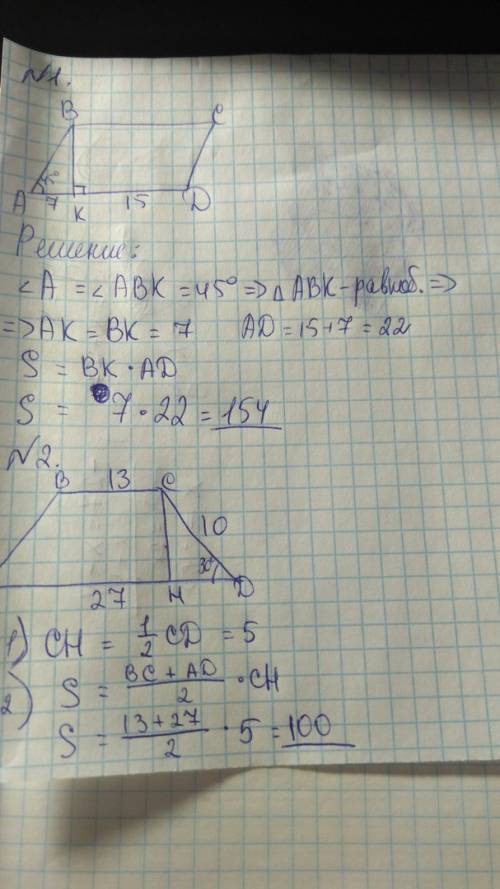 №1.
B C
45°
A 7 K 15 D
Решение:
∠A = ∠ABK = 45° => △ABK - равноб. =>
=> AK = BK = 7 AD = 15+7 = 22
S = BK · AD
S = 7 · 22 = 154
№2.
B 13 C
10
30°
27 H D
1) CH = 1/2 CD = 5
2) S = (BC + AD)/2 · CH
S = (13 + 27)/2 · 5 = 100